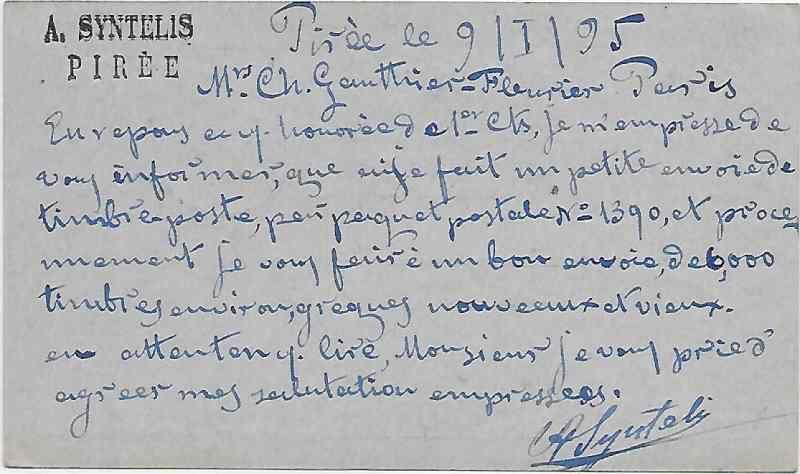 A. SYNTELIS
PIRÈE
Pirèe le 9/I/95
Mrs Ch. Gauthier-Fleurier Paris
En repons a y. honorèe de 1er Ct, je m'empresse de
vous informer, que j'ai fait un petite envoie de
timbre-poste, par paquet postale No 1390, et proce,
nnement je vous ferrè un bon envoie, de 6,000
timbres environ, greques nouveaux et vieux.
en attenten y. lire, Monsieur je vous prie d'
agrèer mes salutation empressees.
A Syntelis